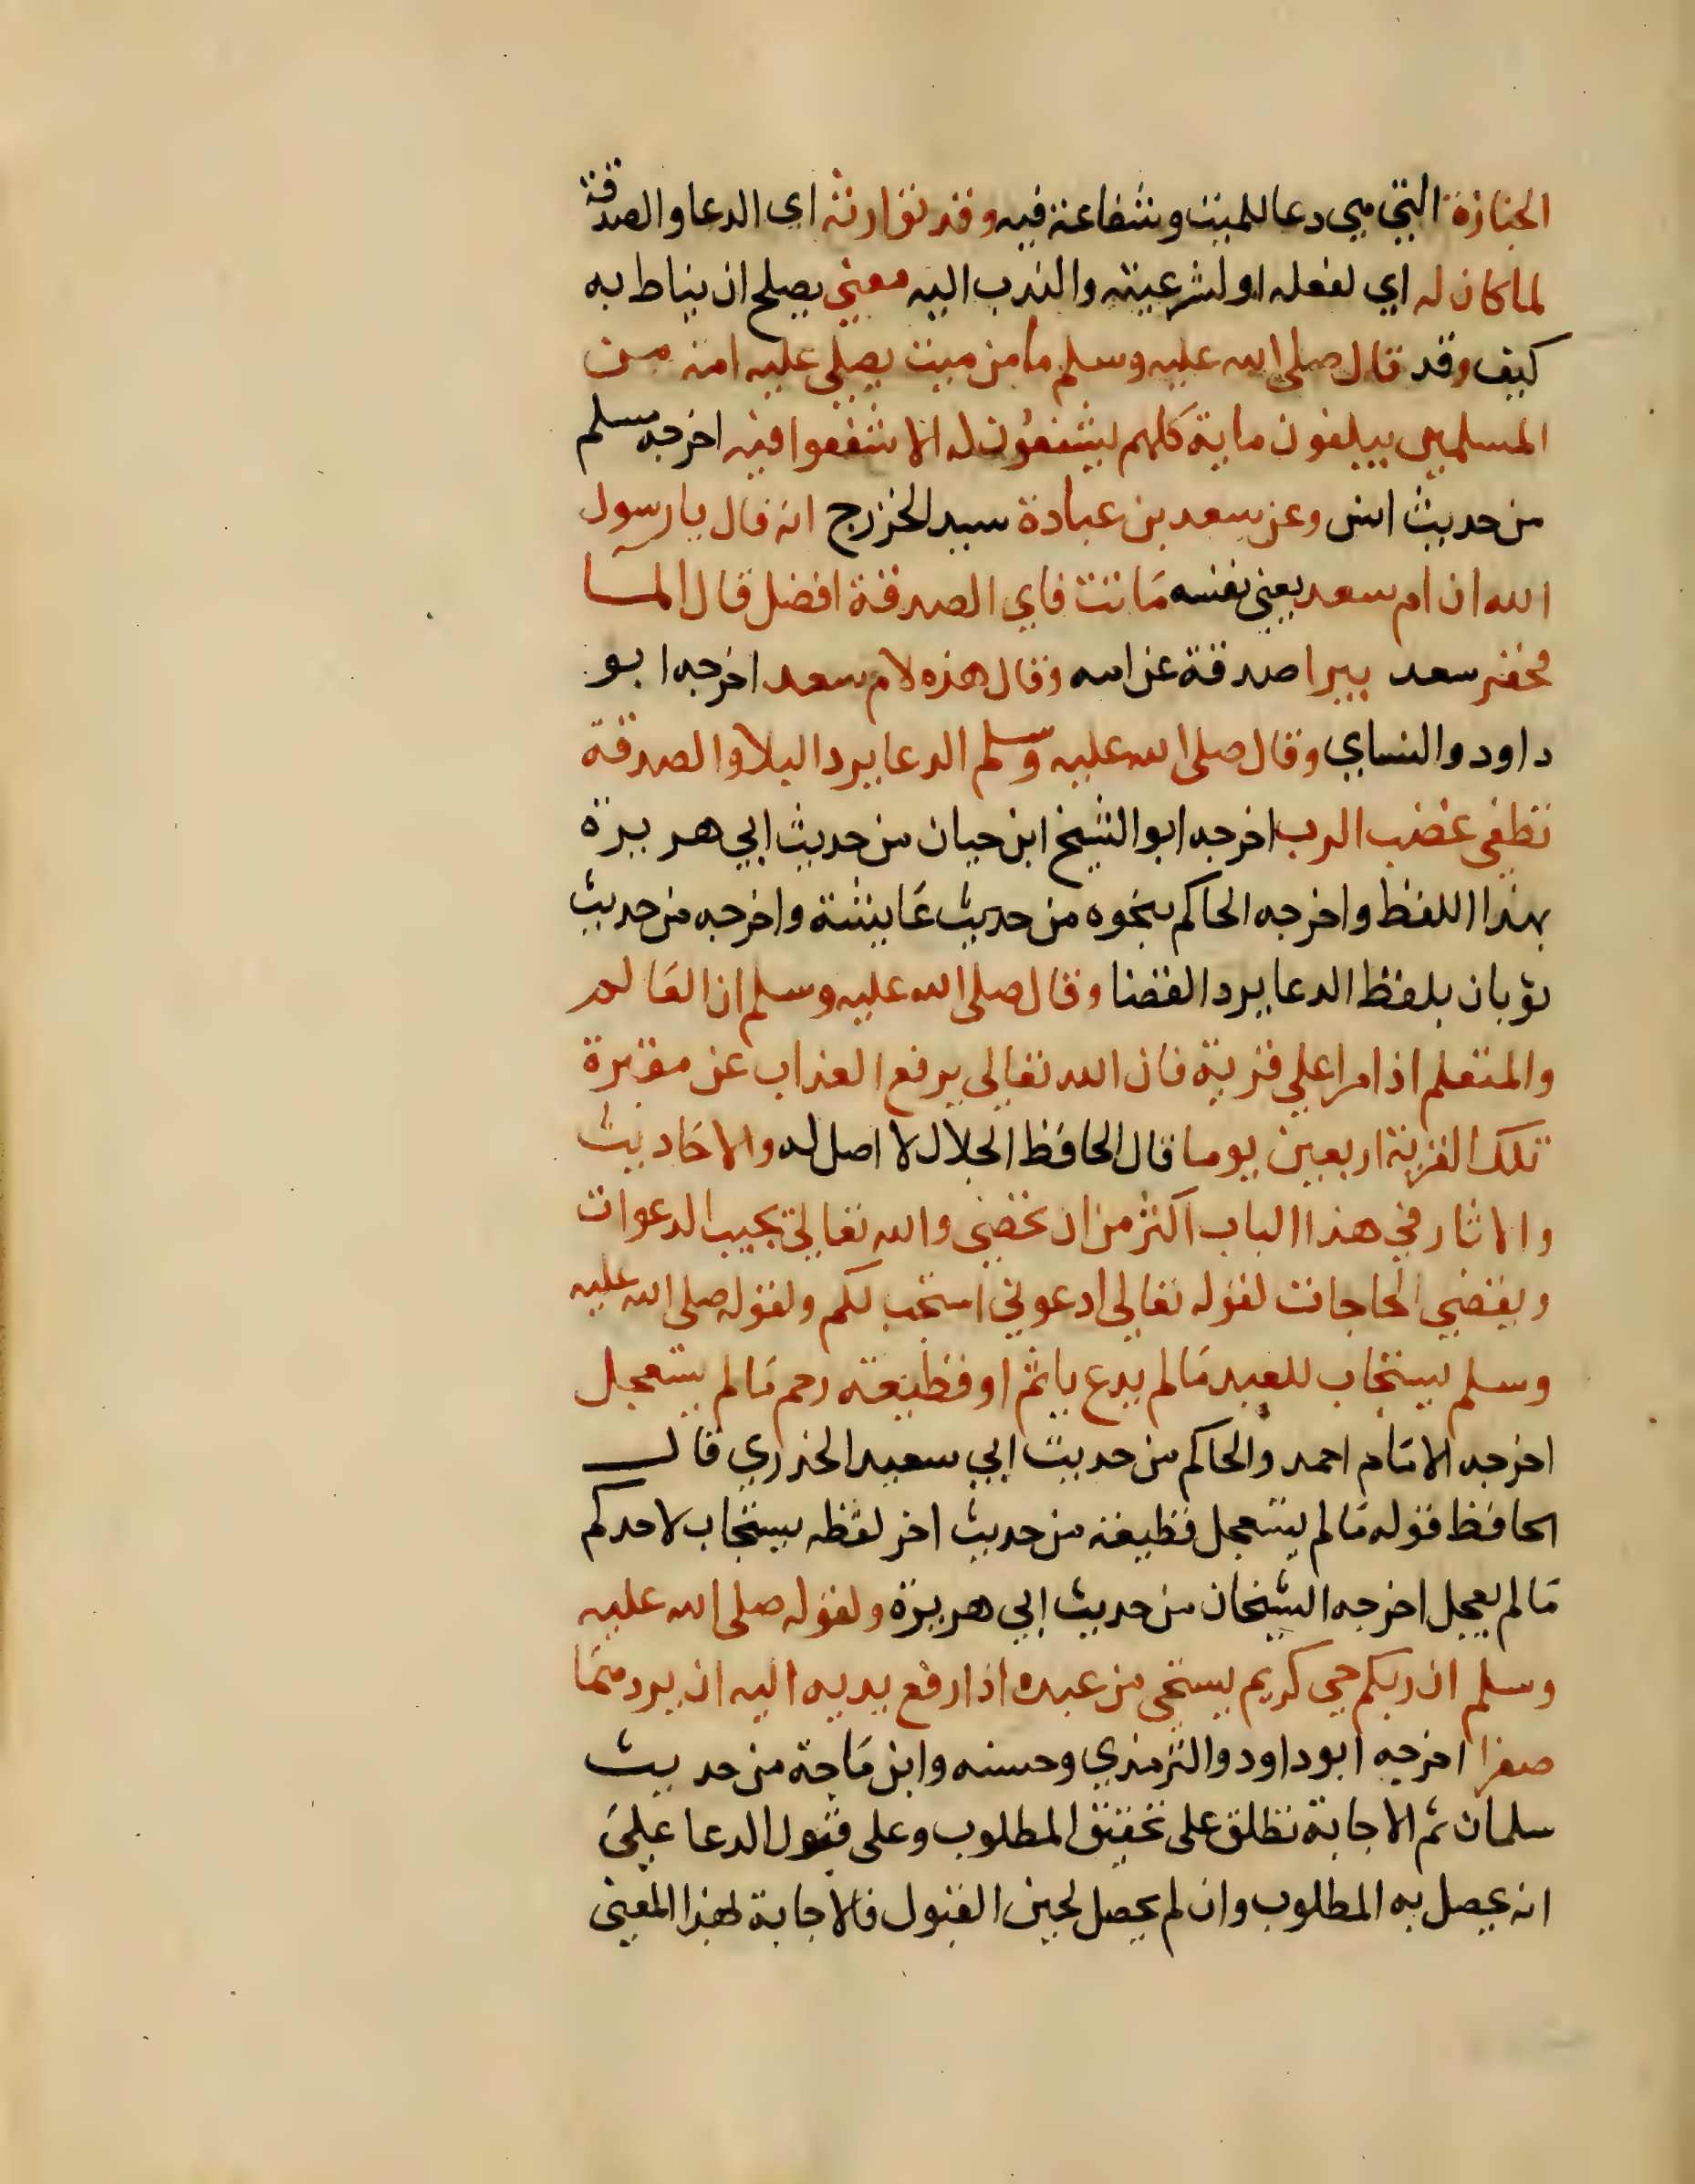 الجنازة التي هي دعا للميت وشفاعة فيه وقد توارثه اي الدعا والصدقة
لما كان له اي لفعله او لشرعيته والندب اليه معني يصلح ان يناط به
كيف وقد قال صلى الله عليه وسلم ما من ميت يصلي عليه امة من
المسلمين يبلغون ماية كلهم يشفعون له الا شفعوا فيه اخرجه مسلم
من حديث انس وعن سعد بن عبادة سيد الخزرج انه قال يا رسول
الله ان ام سعد يعني نفسه ماتت فاي الصدقة افضل قال المسا
فحفر سعد بيرا صدقة عن امه وقال هذه لام سعد اخرجه ابو
داود والنساي وقال صلى الله عليه وسلم الدعا يرد البلا والصدقة
تطفي غضب الرب اخرجه ابو الشيخ ابن حيان من حديث ابي هريرة
بهذا اللفظ واخرجه الحاكم بنحوه من حديث عايشة واخرجه من حديث
ثوبان بلفظ الدعا يرد القضا وقال صلى الله عليه وسلم ان العالم
والمتعلم اذا مرا علي قرية فان الله تعالي يرفع العذاب عن مقبرة
تلك القرية اربعين يوما قال الحافظ الجلال لا اصل له والاحاديث
والاثار في هذا الباب اكثر من ان تحضي والله تعالي يجيب الدعوات
ويقضي الحاجات لقوله تعالي ادعوني استجب لكم ولقوله صلى الله عليه
وسلم يستجاب للعبد ما لم يدع باثم او قطيعة رحم ما لم يستعجل
اخرجه الامام احمد والحاكم من حديث ابي سعيد الخدري قال
الحافظ قوله ما لم يستعجل قطيعة من حديث اخر لفظه يستجاب لاحدكم
ما لم يعجل اخرجه الشيخان من حديث ابي هريرة ولقوله صلى الله عليه
وسلم ان ربكم حي كريم يستحي من عبده اذا رفع يديه اليه ان يردهما
صفرا اخرجه ابو داود والترمذي وحسنه وابن ماجة من حديث
سلمان ثم الاجابة تطلق على تحقيق المطلوب وعلى قبول الدعا علي
انه يحصل به المطلوب وان لم يحصل لحين القبول فالاجابة لهذا المعني